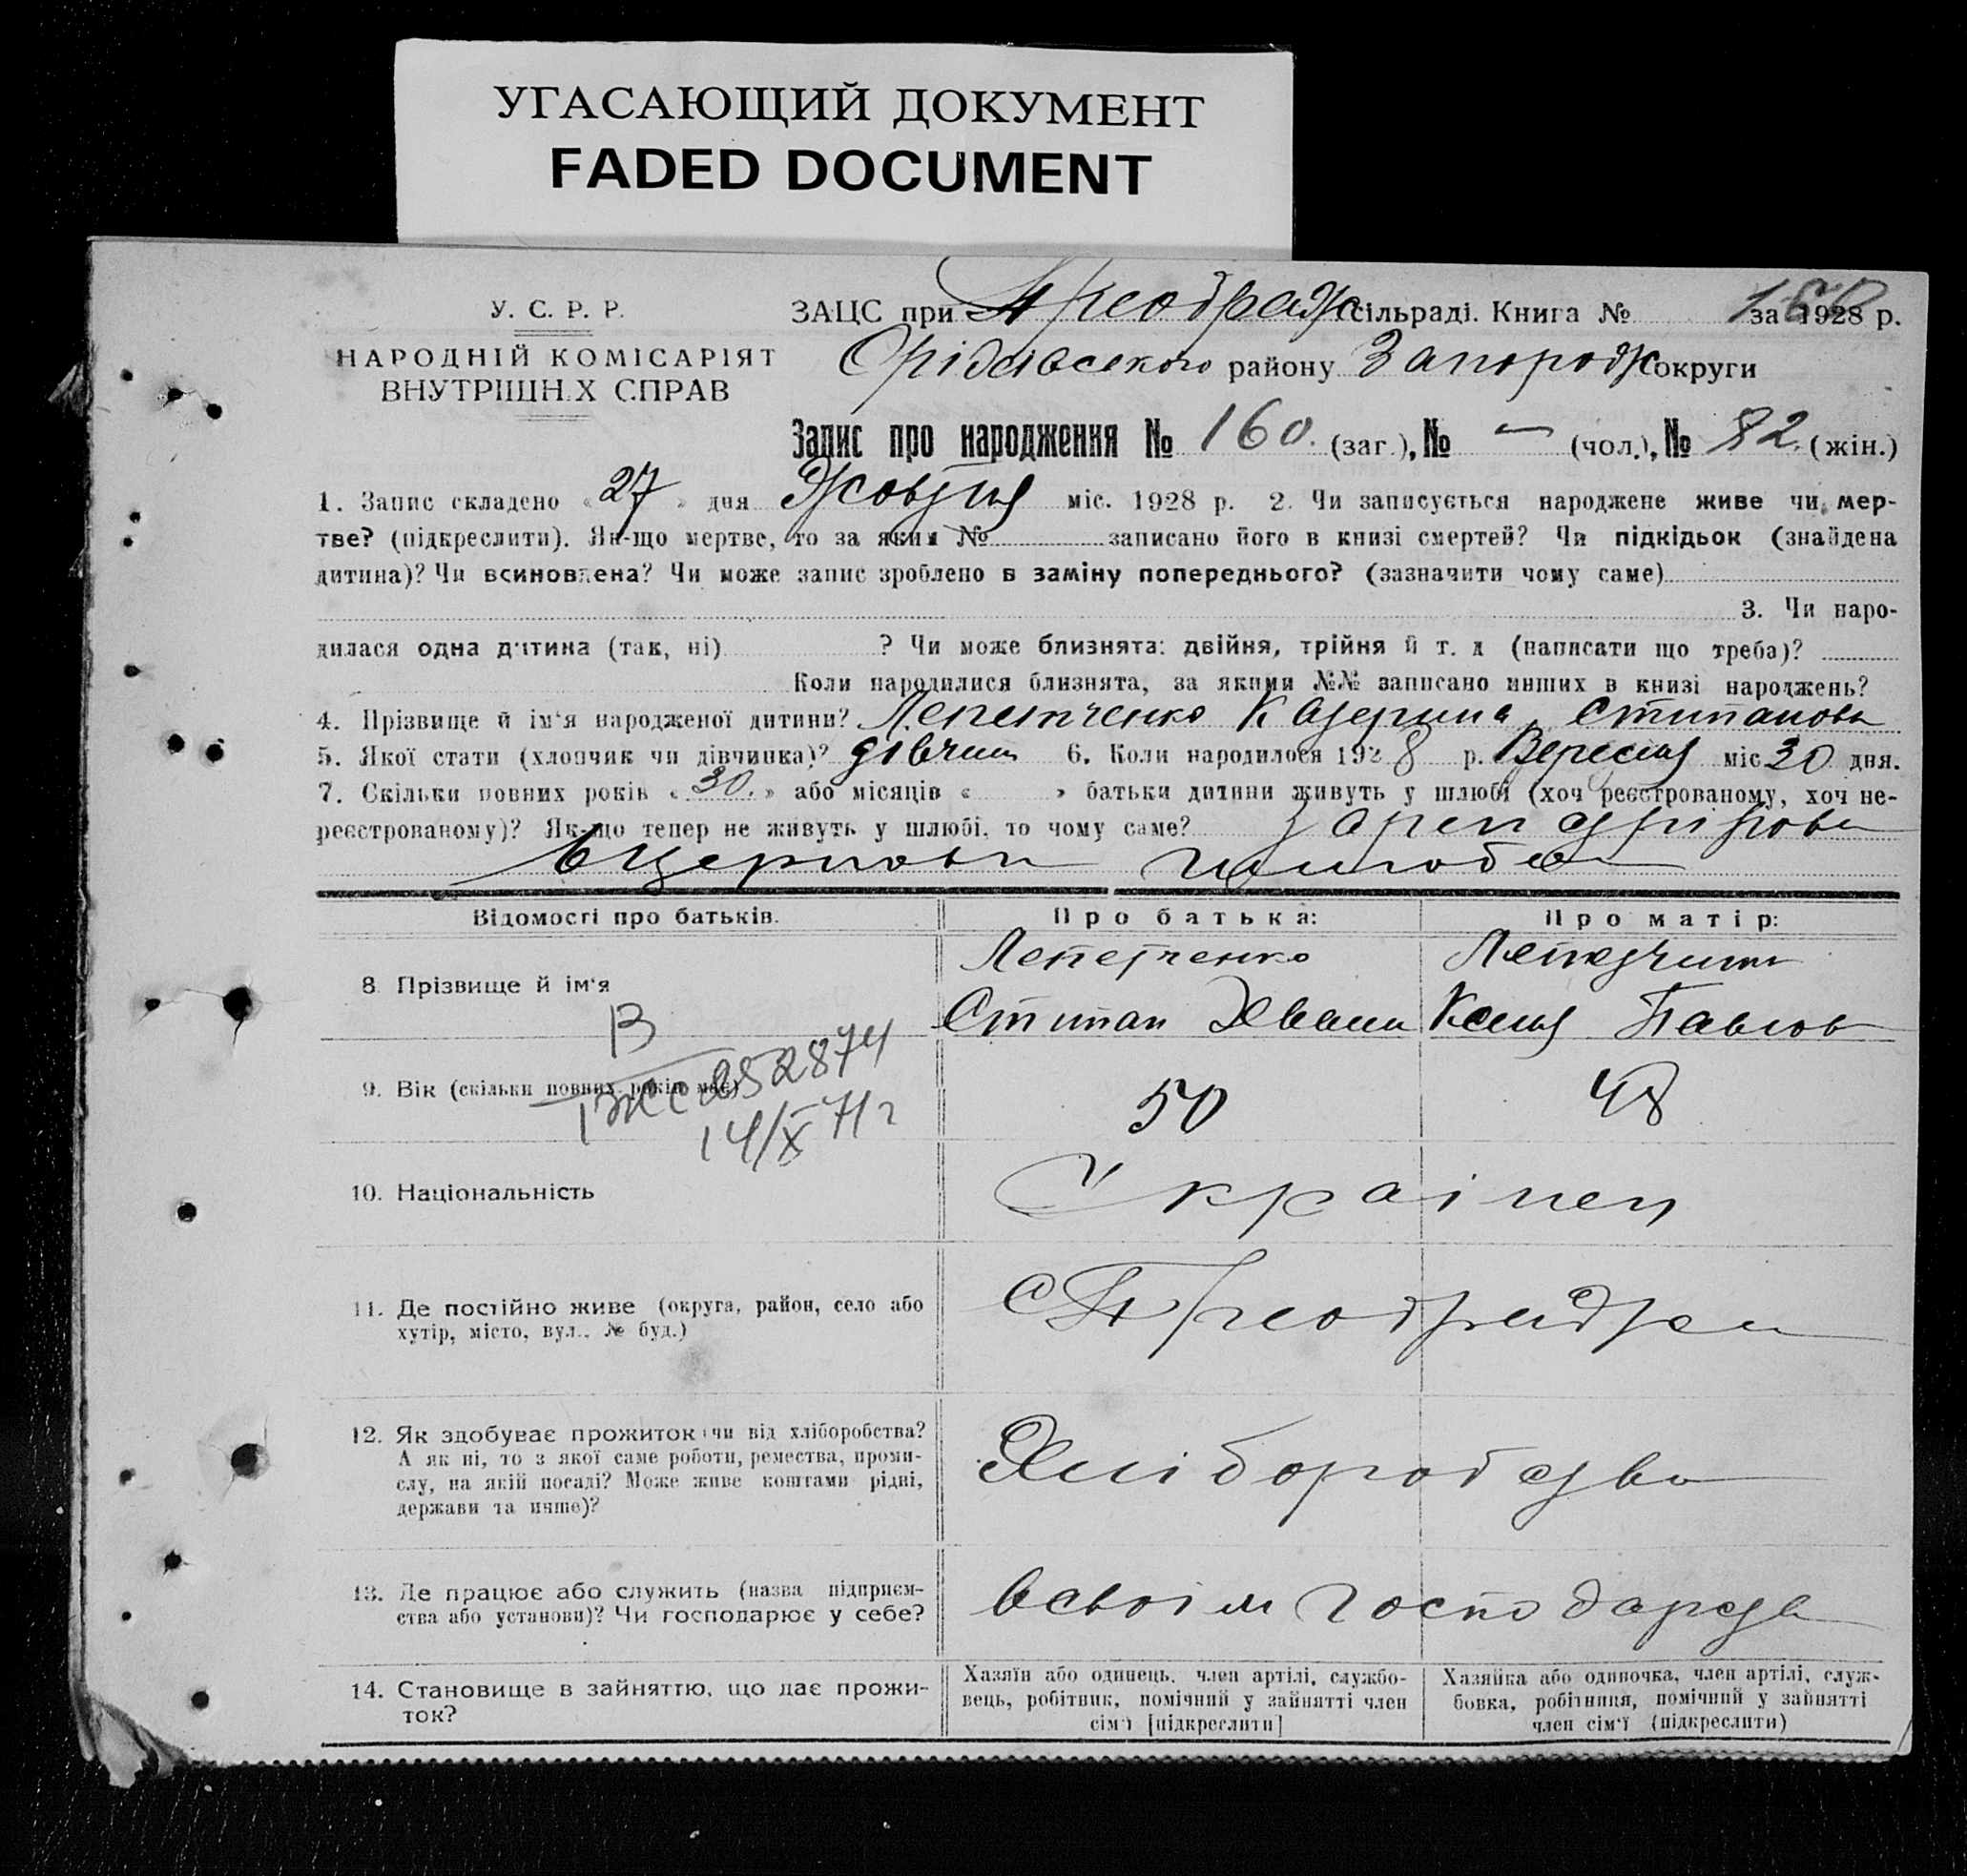 УГАСАЮЩИЙ ДОКУМЕНТ
FADED DOCUMENT
У. С. Р. Р.
НАРОДНІЙ КОМІСАРІЯТ
ВНУТРІШН.Х СПРАВ
ЗАЦС при Преображ сільраді. Книга № за 1928 р.
160
Оріхівського району Запорож округи
Запис про народження № 160. (заг.), № — (чол.), № 82. (жін.)
1. Запис складено « 27 » дня Жовтня міс. 1928 р. 2. Чи записується народжене живе чи мер-
тве? (підкреслити). Як-що мертве, то за яким № записано його в книзі смертей? Чи підкідьок (знайдена
дитина)? Чи всиновлена? Чи може запис зроблено в заміну попереднього? (зазначити чому саме)
3. Чи наро-
дилася одна дитина (так, ні) ? Чи може близнята: двійня, трійня й т. д (написати що треба)?
Коли народилися близнята, за якими №№ записано инших в книзі народжень?
4. Прізвище й ім'я народженої дитини? Лепетченко Катерина Стипанова
5. Якої стати (хлопчик чи дівчинка)? дівчина 6. Коли народилося 1928 р. Вересня міс 30 дня.
7. Скільки повних років « 30. » або місяців « » батьки дитини живуть у шлюбі (хоч реєстрованому, хоч не-
реєстрованому)? Як-що тепер не живуть у шлюбі, то чому саме?
Відомості про батьків.
Про батька:
Про матір:
8. Прізвище й ім'я
Лепетченко
Стипан Іванів
Ксенія Павлов
В
252874
14/X 71г
9. Вік (скільки повних років має)
50
48
10. Національність
Українец
11. Де постійно живе (округа, район, село або
хутір, місто, вул.. № буд.)
С Преображен
12. Як здобуває прожиток (чи від хліборобства?
А як ні, то з якої саме роботи, ремества, проми-
слу, на якій посаді? Може живе коштами рідні,
держави та инше)?
Хліборобство
13. Де працює або служить (назва підприєм-
ства або установи)? Чи господарює у себе?
в своім господарств
14. Становище в зайняттю, що дає прожи-
ток?
Хазяїн або одинець, член артілі, службо-
вець, робітник, помічний у зайнятті член
сім'ї [підкреслити]
Хазяйка або одиночка, член артілі, служ-
бовка, робітниця, помічний у зайнятті
член сім'ї (підкреслити)